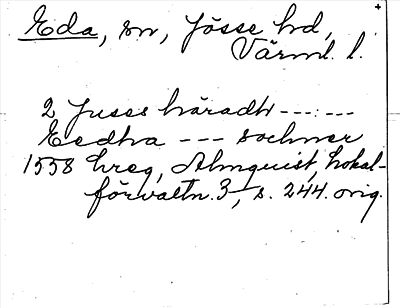 Eda, sn, Jösse hd,
Värml. l.
2 Jusse häradh --- : ---
Eedha --- sochner
1558 hreg, Almquist, Lokal-
förvaltn. 3, s. 244. orig.